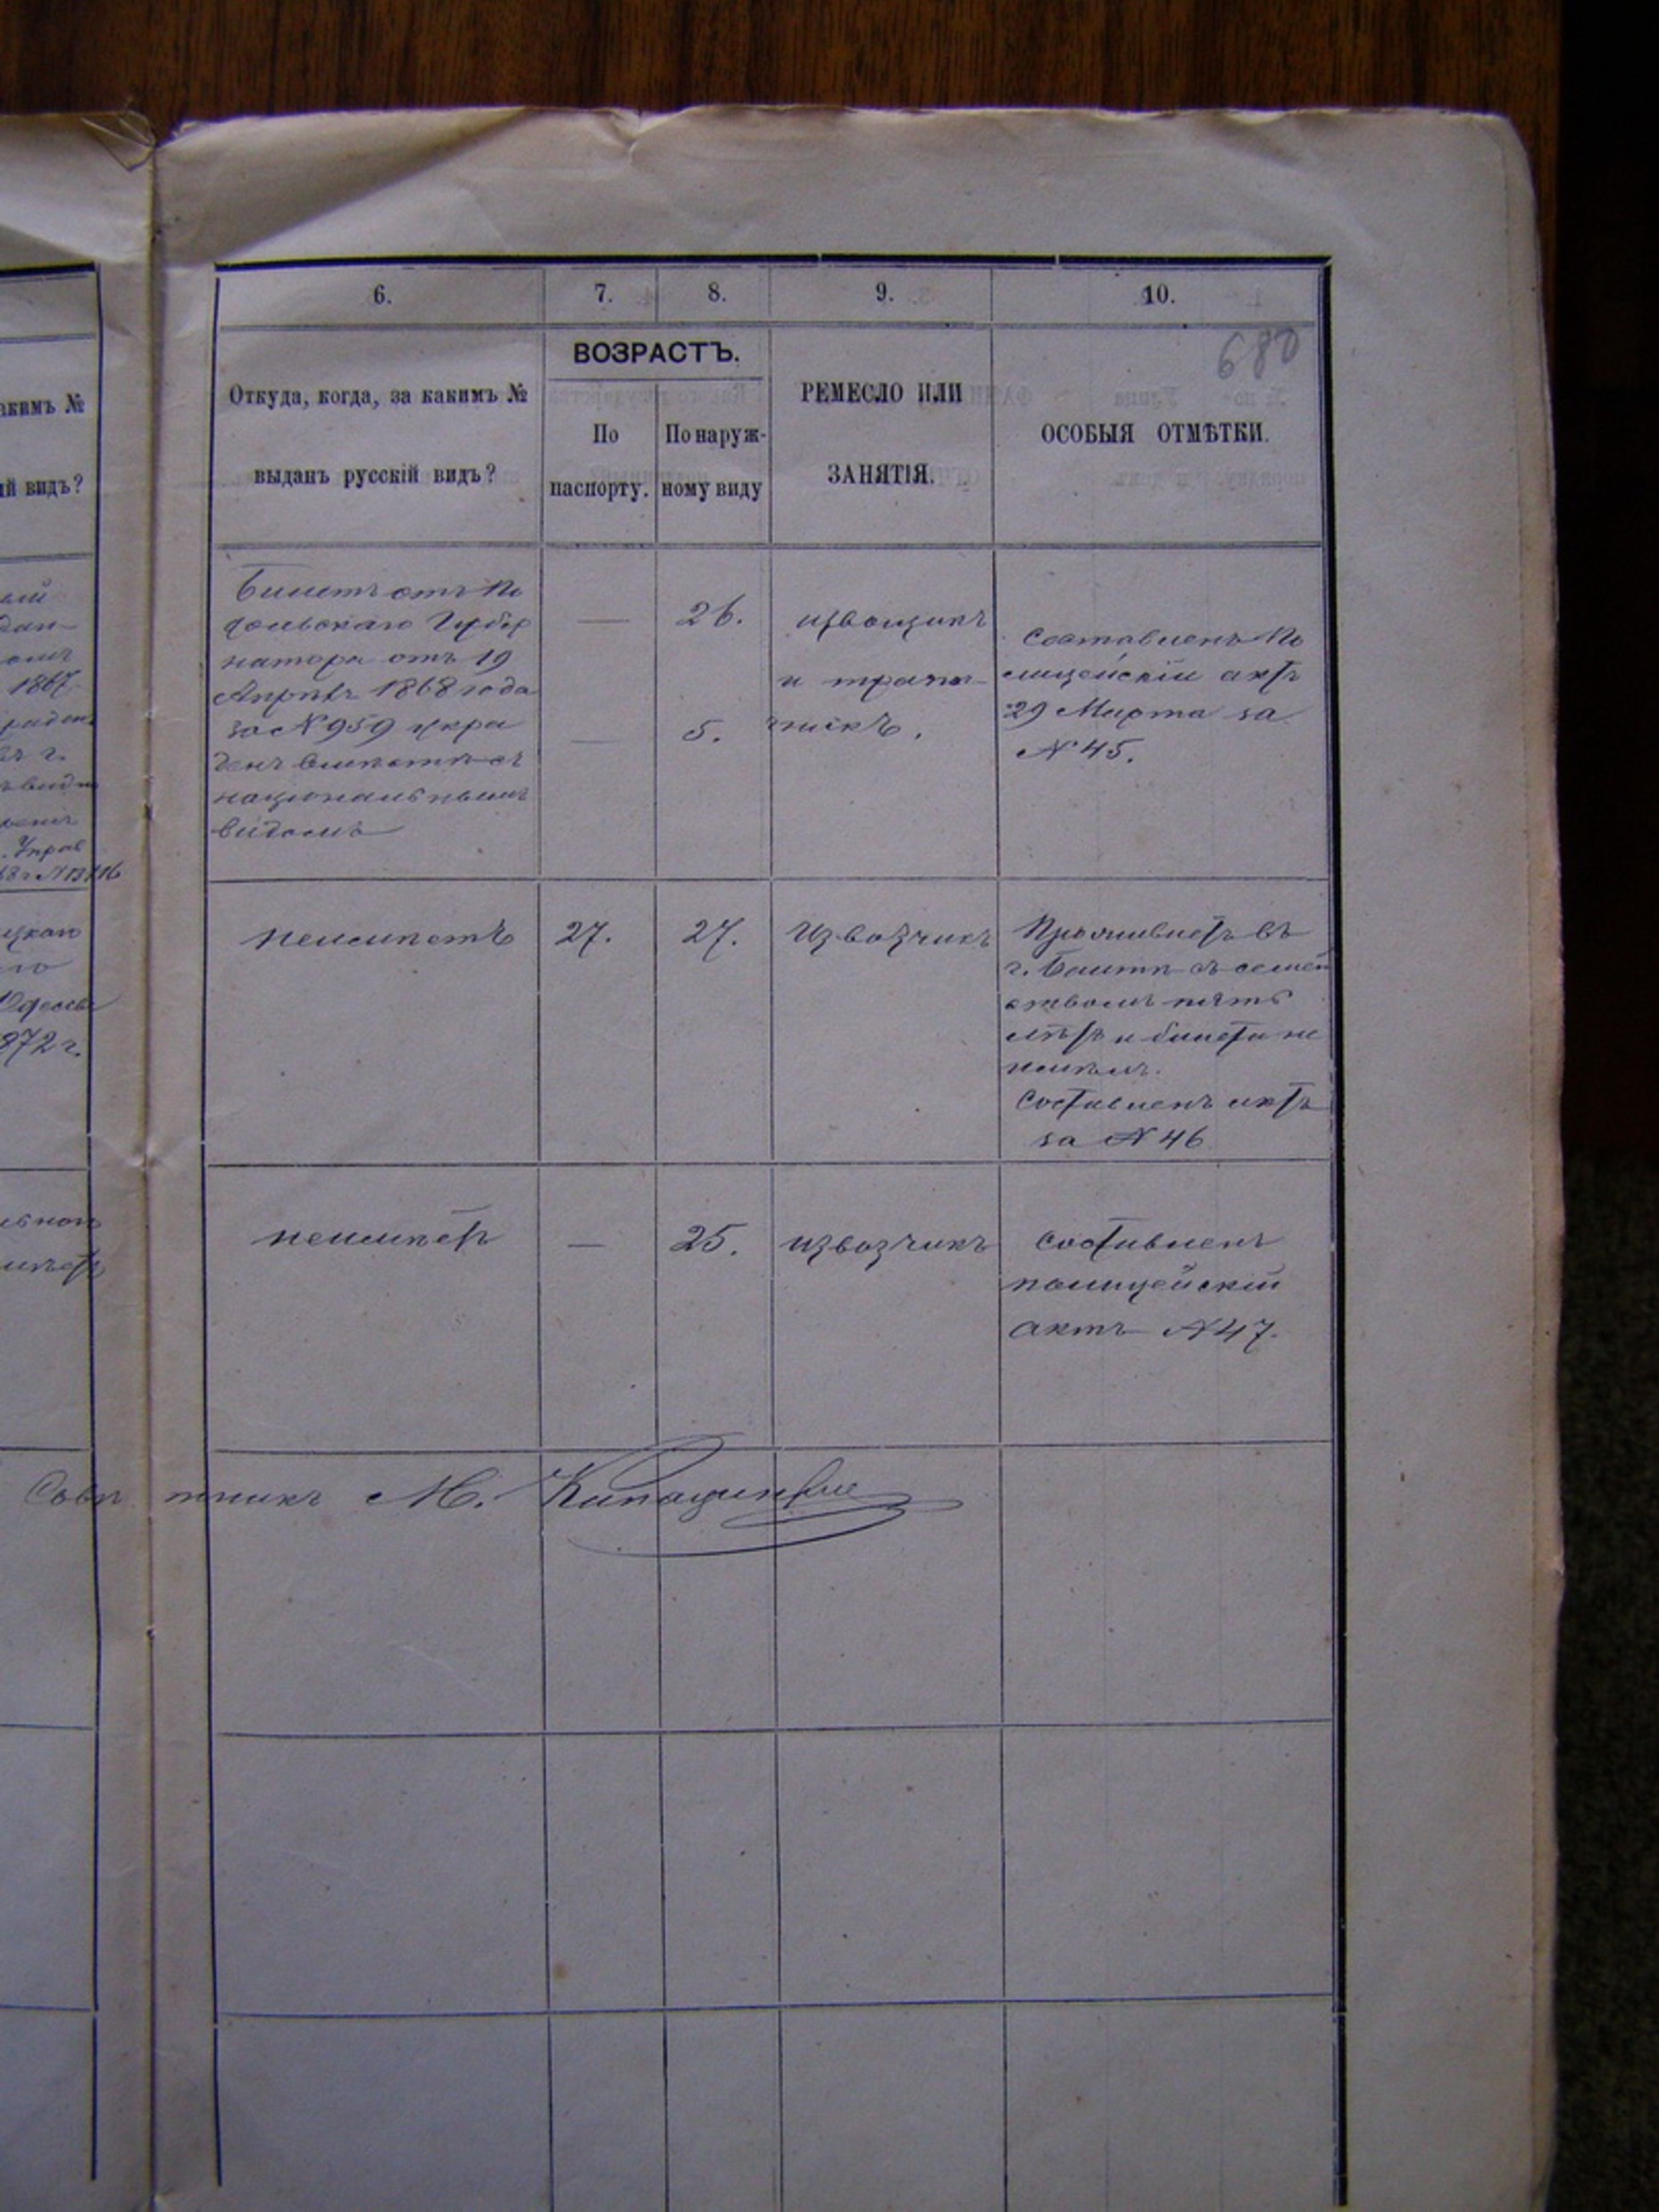 6. 7. 8. 9. 10.
680
ВОЗРАСТЪ.
Откуда, когда, за какимъ №
выданъ русскій видъ?
По
паспорту.
По наруж-
ному виду
РЕМЕСЛО ИЛИ
ЗАНЯТІЯ.
ОСОБЫЯ ОТМѢТКИ.
акимъ №
ій видъ?
1867
872 г.
Билетъ отъ По
дольскаго Губер
натора отъ 19
Апрѣля 1868 года
за № 959 укра
денъ вмѣстѣ съ
національнымъ
видомъ
—
—
26.
5.
извощикъ
и тракти-
Составленъ По
лицейскій актъ
29 Марта за
№ 45.
неимѣетъ
27.
27.
Извозчикъ
Проживаетъ въ
г. Балтѣ съ семей
ствомъ пять
лѣтъ и билета не
имѣлъ.
Составленъ актъ
за № 46
неимѣетъ
—
25.
извозчикъ
Составленъ
полицейскій
актъ № 47.
Совѣтникъ М.